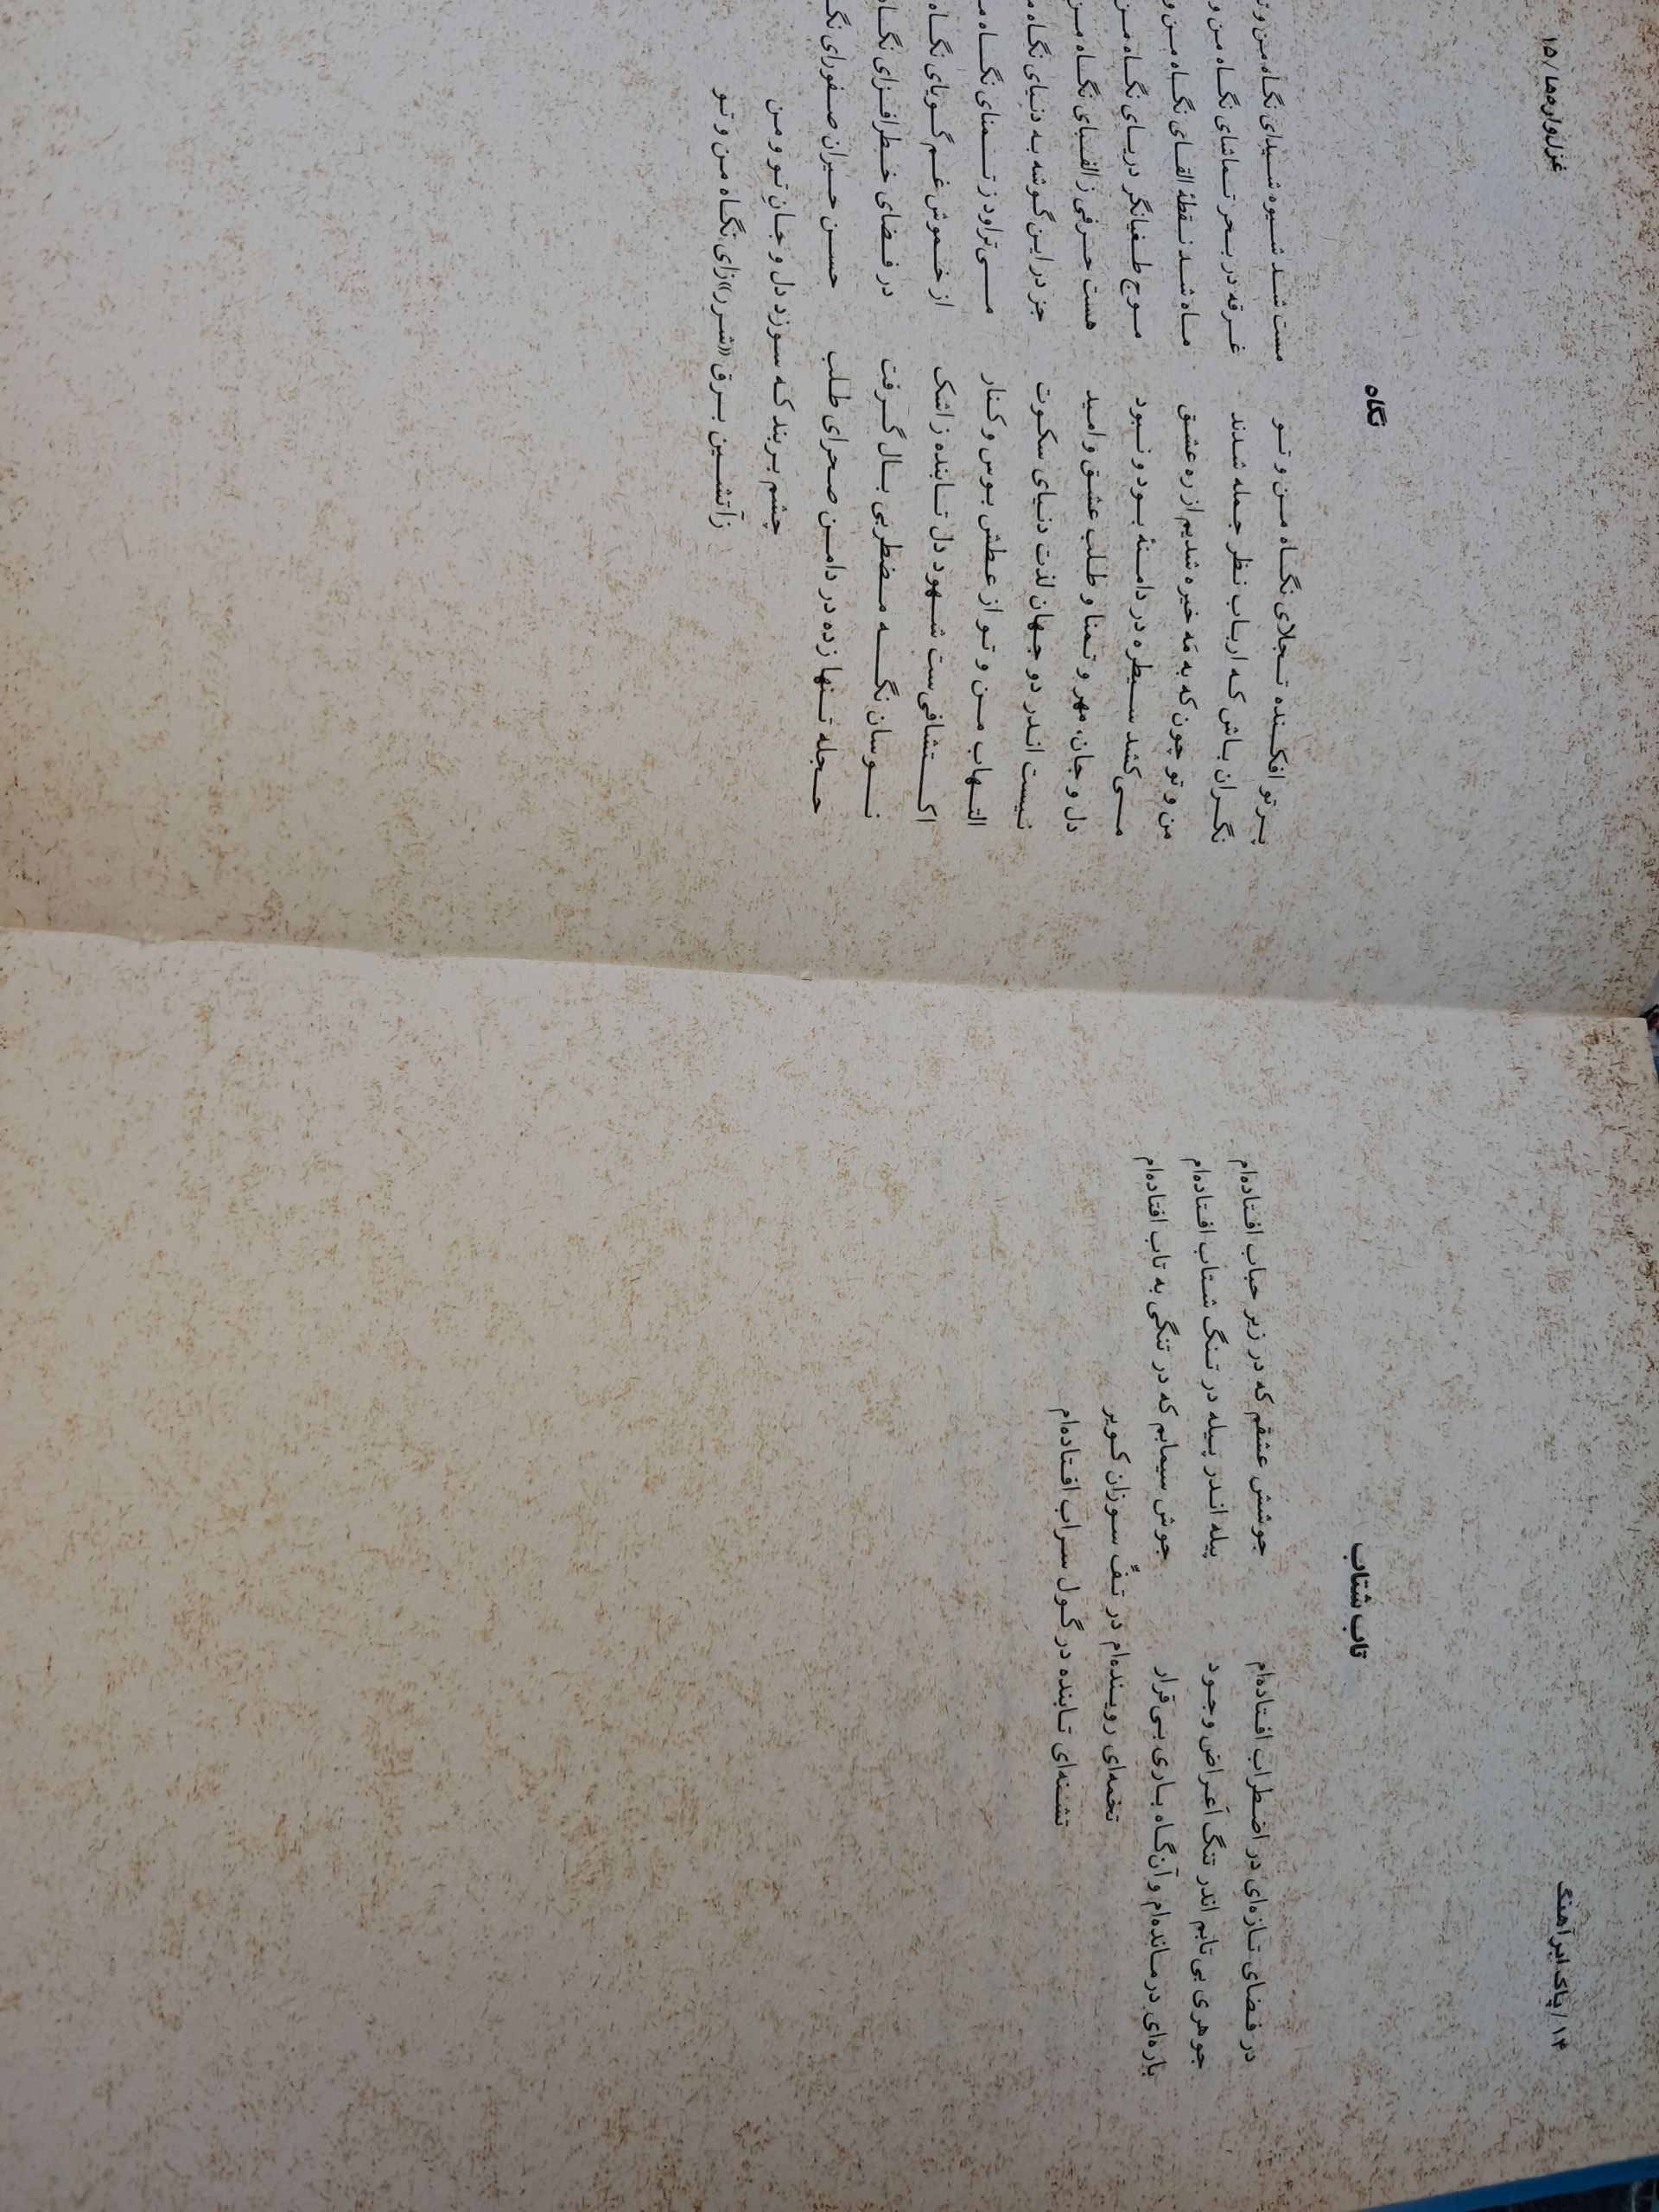 ۱۴ / پاک ابرآهنگ
تاب شتاب
در فضای تازه‌ای در اضطراب افتاده‌ام جوشش عشقم که در زیر حباب افتاده‌ام
جوهری بی تابم اندر تنگ اَعراض وجود پیله اندر پیله در تنگ شتاب افتاده‌ام
باره‌ای درمانده‌ام و آن‌گاه باری بی‌قرار جوش سیمابم که در تنگی به تاب افتاده‌ام
تخمه‌ای روینده‌ام در تفِّ سوزان کویر
تشنه‌ای تابنده در گول سراب افتاده‌ام
غزلواره‌ها / ۱۵
نگاه
پرتو افکنده تجلای نگاه من و تو مست شد شیوه شیدای نگاه من و تو
نگران باش که ارباب نظر جمله شدند غرقه در بحر تماشای نگاه من و
من و تو چون که به مَه خیره شدیم از ره عشق ماه شد نقطهٔ القای نگاه من و
می‌کشد سیطره در دامنهٔ بود و نبود موج طغیانگر دریای نگاه من
دل و جان، مهر و تمنا و طلب عشق و امید هست حرفی ز الفبای نگاه من
نیست اندر دو جهان لذت دنیای سکوت جز در این گوشه به دنیای نگاه
التهاب من و تو از عطش بوس و کنار می‌تراود ز تمنای نگاه
اکتشافی‌ست شهود دل تابنده ز اشک از خموش غم گویای نگاه
نوسان نگه مضطربی بال گرفت در فضای خطرافزای نگاه
حجله تنها زده در دامن صحرای طلب حسن حیران صفورای
چشم بربند که سوزد دل و جانِ تو و من
زآتشین برق «شرر»زای نگاه من و تو